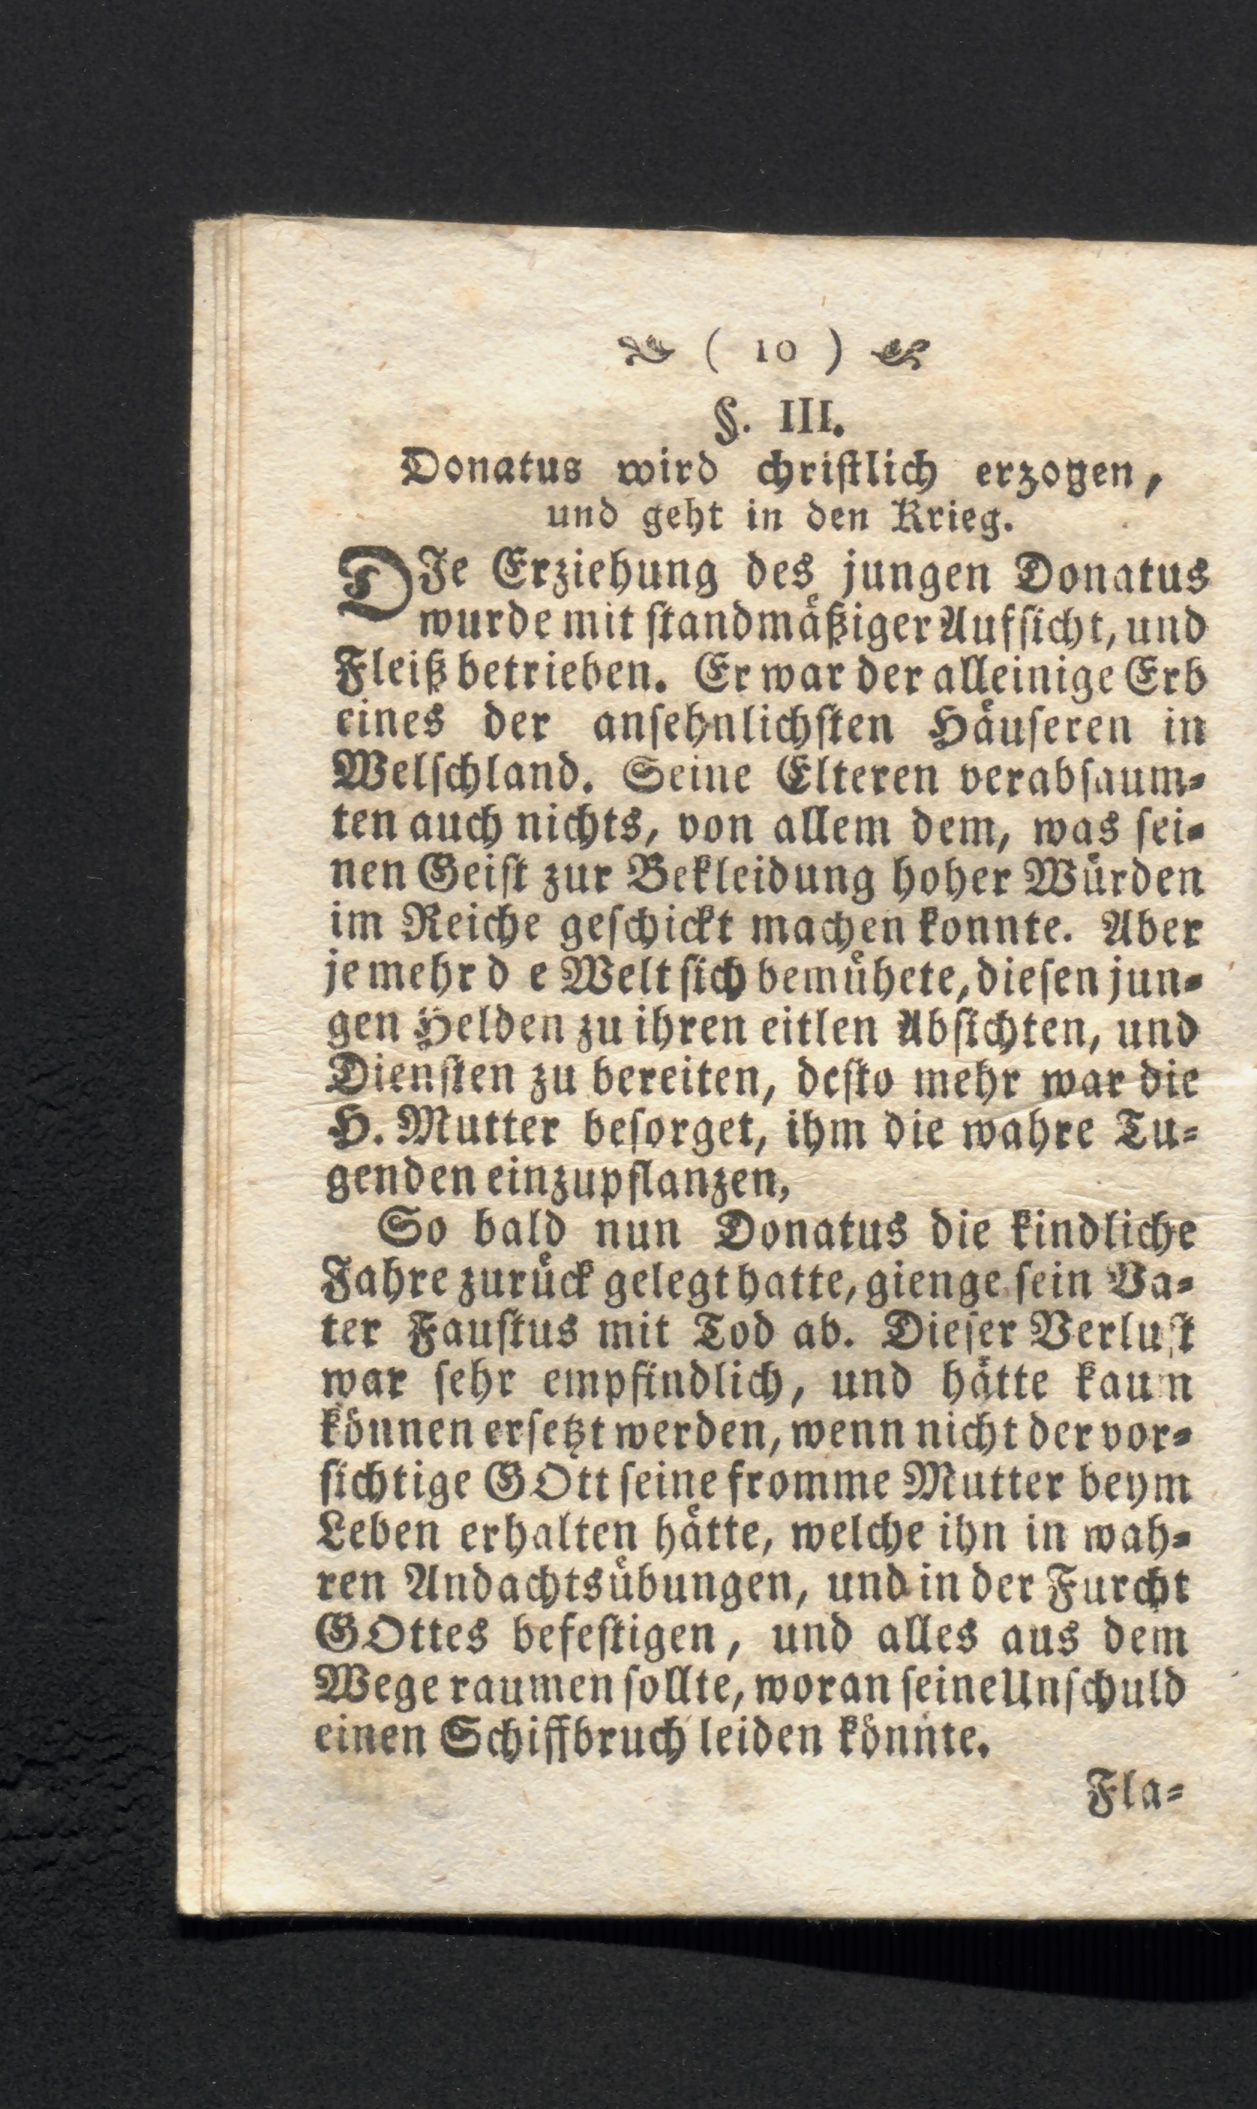 ( 10 )
§. III.
Donatus wird christlich erzogen,
und geht in den Krieg.
DIe Erziehung des jungen Donatus
wurde mit standmäßiger Aufsicht, und
Fleiß betrieben. Er war der alleinige Erb
eines der ansehnlichsten Häuseren in
Welschland. Seine Elteren verabsaum-
ten auch nichts, von allem dem, was sei-
nen Geist zur Bekleidung hoher Würden
im Reiche geschickt machen konnte. Aber
je mehr d e Welt sich bemühete, diesen jun-
gen Helden zu ihren eitlen Absichten, und
Diensten zu bereiten, desto mehr war die
H. Mutter besorget, ihm die wahre Tu-
genden einzupflanzen,
So bald nun Donatus die kindliche
Jahre zurück gelegt hatte, gienge sein Va-
ter Faustus mit Tod ab. Dieser Verlust
war sehr empfindlich, und hätte kaum
können ersetzt werden, wenn nicht der vor-
sichtige GOtt seine fromme Mutter beym
Leben erhalten hätte, welche ihn in wah-
ren Andachtsübungen, und in der Furcht
GOttes befestigen, und alles aus dem
Wege raumen sollte, woran seine Unschuld
einen Schiffbruch leiden könnte.
Fla-